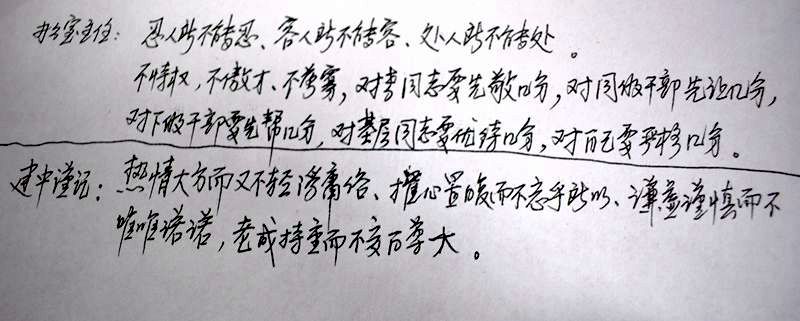 办公室主任：忍人所不能忍、容人所不能容、处人所不能处。
不特权，不傲才、不骛，对老同志要先敬几分，对同级干部先让几分，
对下级干部要先帮几分，对基层同志要优待几分，对自己要严格几分。
建中谨记：热情大方而又不轻浮庸俗、推心置腹而不忘乎所以、谦虚谨慎而不
唯唯诺诺，老成持重而不妄自尊大。